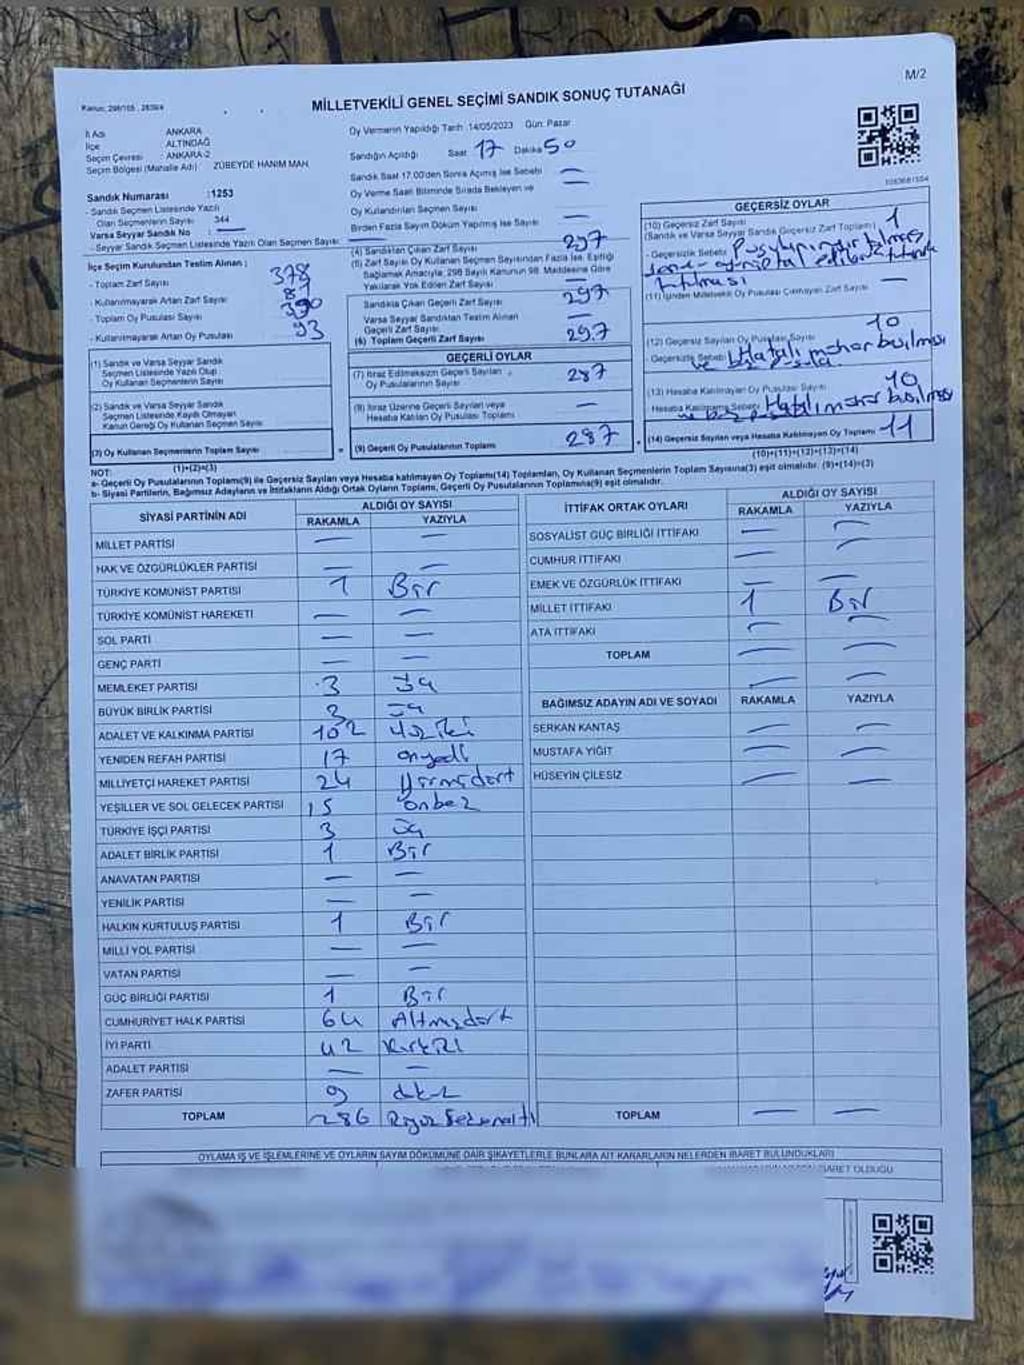 M/2
Kanun: 298/105 , 2839/4
MİLLETVEKİLİ GENEL SEÇİMİ SANDIK SONUÇ TUTANAĞI
İl Adı ANKARA
İlçe ALTINDAĞ
Seçim Çevresi : ANKARA-2
Seçim Bölgesi (Mahalle Adı) : ZÜBEYDE HANIM MAH.
Sandık Numarası :1253
- Sandık Seçmen Listesinde Yazılı
Olan Seçmenlerin Sayısı: 344
Varsa Seyyar Sandık No : —
- Seyyar Sandık Seçmen Listesinde Yazılı Olan Seçmen Sayısı: —
Oy Vermenin Yapıldığı Tarih :14/05/2023 Gün: Pazar
Sandığın Açıldığı Saat 17 Dakika 50
Sandık Saat 17.00'den Sonra Açılmış İse Sebebi —
Oy Verme Saati Bitiminde Sırada Bekleyen ve —
Oy Kullandırılan Seçmen Sayısı
Birden Fazla Sayım Döküm Yapılmış İse Sayısı —
İlçe Seçim Kurulundan Teslim Alınan ;
- Toplam Zarf Sayısı 378
- Kullanılmayarak Artan Zarf Sayısı 81
- Toplam Oy Pusulası Sayısı 390
- Kullanılmayarak Artan Oy Pusulası 93
(1) Sandık ve Varsa Seyyar Sandık
Seçmen Listesinde Yazılı Olup
Oy Kullanan Seçmenlerin Sayısı
(2) Sandık ve Varsa Seyyar Sandık
Seçmen Listesinde Kaydı Olmayan
Kanun Gereği Oy Kullanan Seçmen Sayısı
(3) Oy Kullanan Seçmenlerin Toplam Sayısı
(1)+(2)=(3)
(4) Sandıktan Çıkan Zarf Sayısı 297
(5) Zarf Sayısı Oy Kullanan Seçmen Sayısından Fazla İse, Eşitliği
Sağlamak Amacıyla, 298 Sayılı Kanunun 98. Maddesine Göre
Yakılarak Yok Edilen Zarf Sayısı —
Sandıkta Çıkan Geçerli Zarf Sayısı 297
Varsa Seyyar Sandıktan Teslim Alınan
Geçerli Zarf Sayısı —
(6) Toplam Geçerli Zarf Sayısı 297
GEÇERLİ OYLAR
(7) İtiraz Edilmeksizin Geçerli Sayılan
Oy Pusulalarının Sayısı 287
(8) İtiraz Üzerine Geçerli Sayılan veya
Hesaba Katılan Oy Pusulası Toplamı —
(9) Geçerli Oy Pusulalarının Toplamı 287
GEÇERSİZ OYLAR
(10) Geçersiz Zarf Sayısı 1
(Sandık ve Varsa Seyyar Sandık Geçersiz Zarf Toplamı)
- Geçersizlik Sebebi
(11) İçinden Milletvekili Oy Pusulası Çıkmayan Zarf Sayısı —
(12) Geçersiz Sayılan Oy Pusulası Sayısı 10
- Geçersizlik Sebebi Hatalı mühür basılması
(13) Hesaba Katılmayan Oy Pusulası Sayısı 10
Hesaba Katılmama Sebebi Hatalı mühür basılması
(14) Geçersiz Sayılan veya Hesaba Katılmayan Oy Toplamı 11
(10)+(11)+(12)+(13)=(14)
NOT:
a- Geçerli Oy Pusulalarının Toplamı(9) ile Geçersiz Sayılan veya Hesaba katılmayan Oy Toplamı(14) Toplamları, Oy Kullanan Seçmenlerin Toplam Sayısına(3) eşit olmalıdır. (9)+(14)=(3)
b- Siyasi Partilerin, Bağımsız Adayların ve İttifakların Aldığı Ortak Oyların Toplamı, Geçerli Oy Pusulalarının Toplamına(9) eşit olmalıdır.
SİYASİ PARTİNİN ADI ALDIĞI OY SAYISI
RAKAMLA YAZIYLA
MİLLET PARTİSİ — —
HAK VE ÖZGÜRLÜKLER PARTİSİ — —
TÜRKİYE KOMÜNİST PARTİSİ 1 Bir
TÜRKİYE KOMÜNİST HAREKETİ — —
SOL PARTİ — —
GENÇ PARTİ — —
MEMLEKET PARTİSİ 3 üç
BÜYÜK BİRLİK PARTİSİ 3 üç
ADALET VE KALKINMA PARTİSİ 102 Yüziki
YENİDEN REFAH PARTİSİ 17 onyedi
MİLLİYETÇİ HAREKET PARTİSİ 24 Yirmidört
YEŞİLLER VE SOL GELECEK PARTİSİ 15 onbeş
TÜRKİYE İŞÇİ PARTİSİ 3 üç
ADALET BİRLİK PARTİSİ 1 Bir
ANAVATAN PARTİSİ — —
YENİLİK PARTİSİ — —
HALKIN KURTULUŞ PARTİSİ 1 Bir
MİLLİ YOL PARTİSİ — —
VATAN PARTİSİ — —
GÜÇ BİRLİĞİ PARTİSİ 1 Bir
CUMHURİYET HALK PARTİSİ 64 Altmışdört
İYİ PARTİ 42 Kırkiki
ADALET PARTİSİ — —
ZAFER PARTİSİ 9 dokuz
TOPLAM 286
İTTİFAK ORTAK OYLARI ALDIĞI OY SAYISI
RAKAMLA YAZIYLA
SOSYALİST GÜÇ BİRLİĞİ İTTİFAKI — —
CUMHUR İTTİFAKI — —
EMEK VE ÖZGÜRLÜK İTTİFAKI — —
MİLLET İTTİFAKI 1 Bir
ATA İTTİFAKI — —
TOPLAM — —
BAĞIMSIZ ADAYIN ADI VE SOYADI RAKAMLA YAZIYLA
SERKAN KANTAŞ — —
MUSTAFA YİĞİT — —
HÜSEYİN ÇİLESİZ — —
TOPLAM — —
OYLAMA İŞ VE İŞLEMLERİNE VE OYLARIN SAYIM DÖKÜMÜNE DAİR ŞİKAYETLERLE BUNLARA AİT KARARLARIN NELERDEN İBARET BULUNDUKLARI